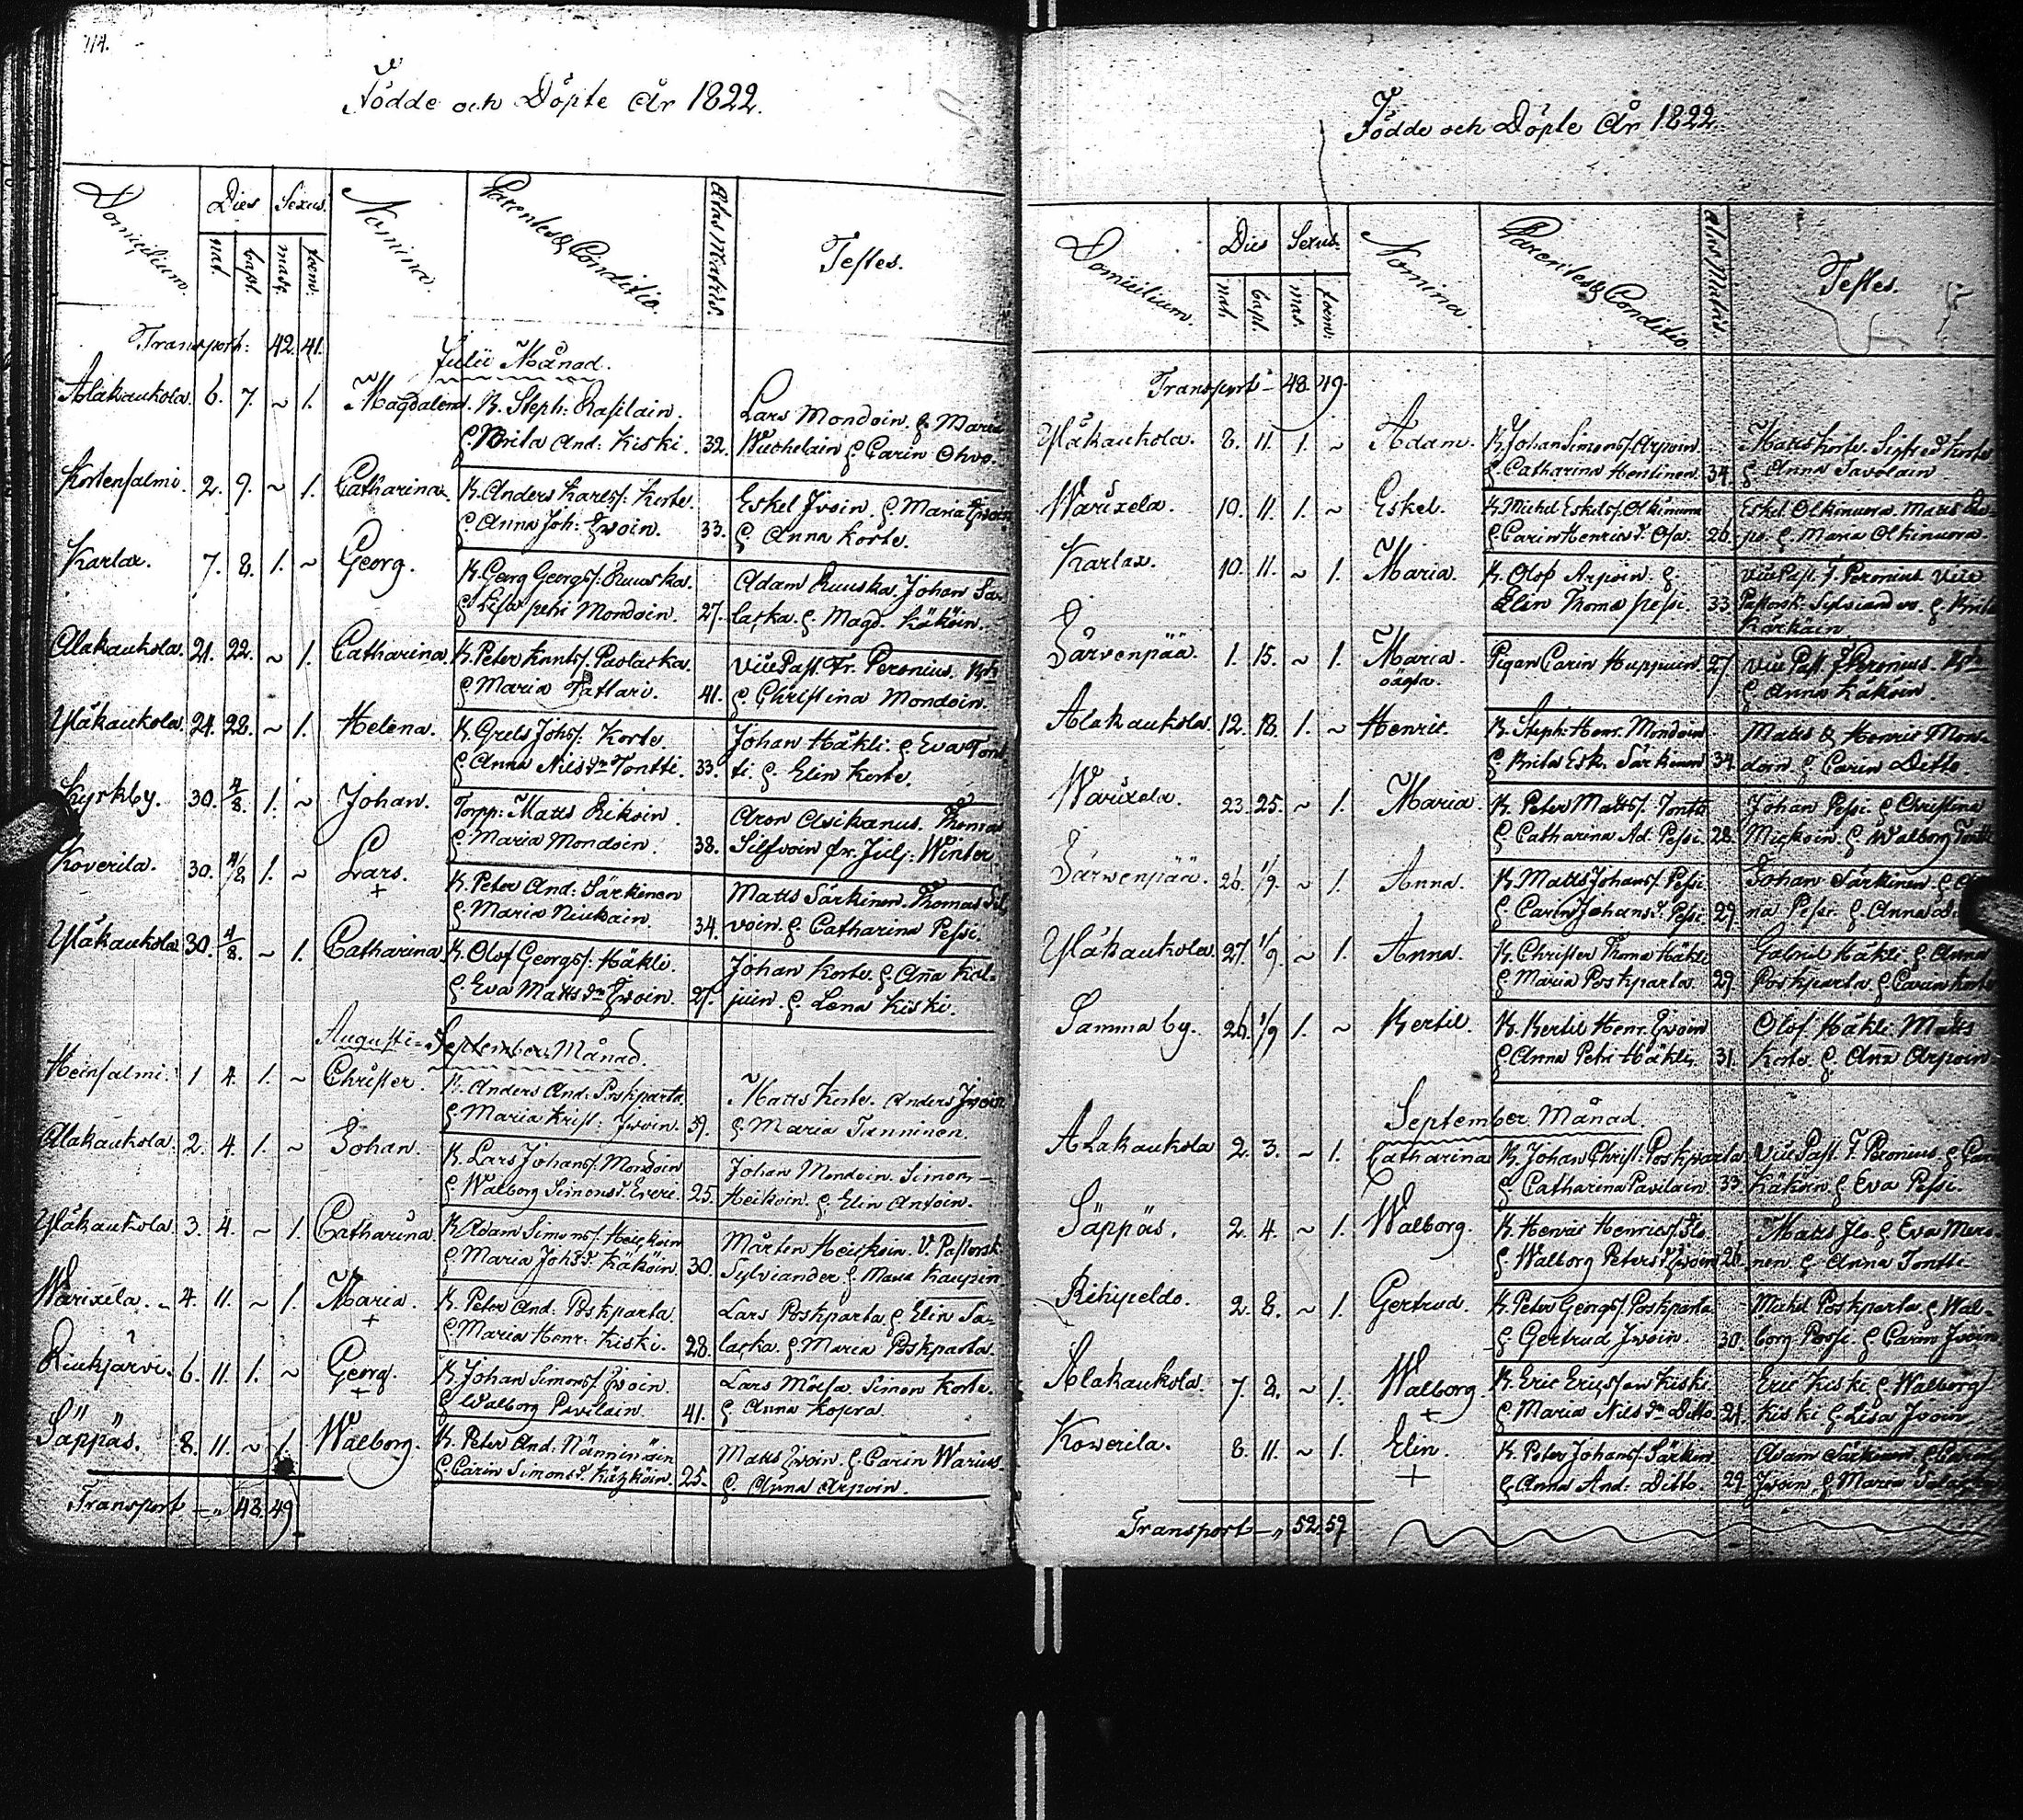 114.
Födde och Döpte År 1822.
Domicilium. Dies Sexus. Nomina. Parentes & Conditio. Ætas Matris. Testes.
nat. bapt. masc. foem:
Transport: 42. 41.
Julii Månad.
Alakaukola. 6. 7. ~ 1. Magdalena. B. Steph: Rasilain. Lars Mondoin. & Maria
& Brita And: Kiski. 32. & Carin Ohvo.
Kortensalmi. 2. 9. ~ 1. Catharina. B. Anders Karlss: Korte. Eskel Ivoin. & Maria Ivoin
& Anna Joh: Ivoin. 33. & Anna Korte.
Karlax. 7. 8. 1. ~ Georg. B. Georg Georgss: Ruuska. Adam Ruuska. Johan Sa-
& Lisa Petri Mondoin. 27. lacka. & Magd. Käköin.
Alakaukola. 21. 22. ~ 1. Catharina. B. Peter Knuts. Paolacka. Vice Past. Fr. Peronius.
& Maria Tattari. 41. & Christina Mondoin.
Yläkaukola. 24. 28. ~ 1. Helena. B. Grels Johss: Korte. Johan Häkli. & Eva Tont
& Anna Nils dr Tontti. 33. ti. & Elin Korte.
Kyrkby. 30. 4/8. 1. ~ Johan. Torp: Matts Rikoin. Aron Asikanus. Thomas
& Maria Mondoin. 38. Silfvoin fr. Julj: Winter.
Koverila. 30. 4/8. 1. ~ Lars. B. Peter And: Särkinen Matts Särkinen. Thomas Sil
+ & Maria Neukain. 34. voin. & Catharina Pessi.
Yläkaukola 30. 4/8. ~ 1. Catharina B. Olof Georgss: Häkli. Johan Korte. & Anna Kal-
& Eva Matts dr Ivoin. 27. juin. & Lena Kiski.
Augusti September Månad.
Heinsalmi. 1 4. 1. ~ Christer. B. Anders And. Poskparta Matts Korte. Anders Ivoin
& Maria Krist: Ivoin. 39. & Maria Tanninen.
Alakaukola. 2. 4. 1. ~ Johan. B. Lars Johanss. Mondoin Johan Mondoin. Simon
& Walborg Simons d. Everi. 25. Heikoin. & Elin Anfoin.
Yläkaukola. 3. 4. ~ 1. Catharina B. Adam Simonss: Heickoin Mårten Heickoin. V. Pastorsk
& Maria Johs d. Käköin 30. Sylviander & Maria Kaupin
Warixela. 4. 11. ~ 1. Maria. B. Peter And: Poskparta. Lars Poskparta & Elin Sa-
+ & Maria Henr: Kiski. 28. lacka. & Maria Poskparta.
Riukjärvi. 6. 11. 1. ~ Georg. B. Johan Simonss. Ivoin. Lars Mölsa. Simon Korte.
+ & Walborg Pavilain. 41. & Anna Kopra.
Säppäs. 8. 11. ~ 1. Walborg. B. Peter And: Nänninäin Matts Ivoin. & Carin Warius.
& Carin Simons d. 25. & Anna Arpoin.
Transport — „ 48. 49.
Födde och Döpte År 1822.
Domicilium. Dies Sexus. Nomina. Parentes & Conditio. Ætas Matris. Testes.
nat. bapt. mas. foem:
Transport — 48. 49.
Yläkaukola. 8. 11. 1. ~ Adam. B. Johan Simonss. Arpoin. Matts Korte. Sigfred Korte
& Catharina Hentinen. 34. & Anna Savolain
Warixela. 10. 11. 1. ~ Eskel. B. Michel Eskelss. Olkinuora Eskel Olkinuora. Matts
& Carin Henrics d. 26. & Maria Olkinuora.
Karlax. 10. 11. ~ 1. Maria. B. Olof Arpoin & Vice Past. F. Peronius. Vice
Elin Thoma Pessi. 33. Pastorsk: Sylviand & Brita
Kärkäin.
Järvenpää. 1. 15. ~ 1. Maria. Pigan Carin Huppuin 27. Vice Past. F Peronius.
oägta. & Anna Käköin.
Alakaukola. 12. 18. 1. ~ Henric. B. Steph: Henr. Mondoin Matts & Henric Mon-
& Brita Esk. Särkinen 34. doin & Carin Ditto.
Warixela. 23. 25. ~ 1. Maria. B. Peter Mattss. Tontti Johan Pessi. & Christina
& Catharina Ad. Pessi. 28. Mickoin. & Walborg Tontti
Järwenpää. 26. 1/9. ~ 1. Anna. B. Matts Johanss. Pessi. Johan Särkinen &
& Carin Johans d. Pessi. 29. na Pessi. & Anna
Yläkaukola. 27. 1/9. ~ 1. Anna. B. Christer Thoma Häkli Gabriel Häkli. & Anna
& Maria Poskparta. 29. Poskparta. & Carin Korte
Samma by. 26. 1/9 1. ~ Bertil. B. Bertil Henr. Ivoin Olof Häkli. Matts
& Anna Petri Häkli. 31. Korte. & Anna Arpoin.
September Månad.
Alakaukola 2. 3. ~ 1. Catharina B. Johan Christ: Poskparta Vice Past. F. Peronius. &
& Catharina Pavilain. 33. Käköin. & Eva Pessi.
Säppäs. 2. 4. ~ 1. Walborg. B. Henric Henricss. Ilo Matts Ilo. & Eva Mero-
& Walborg Peters d. Ivoin 26. nen. & Anna Tontti.
Rihipeldo. 2. 8. ~ 1. Gertrud. B. Peter Georgss. Poskparta Michel Poskparta. & Wal-
& Gertrud Ivoin 30. borg Pessi. & Carin Ivoin
Alakaukola. 7. 8. ~ 1. Walborg B. Eric Ericsson Kiski. Eric Kiski. & Walborg
+ & Maria Nils dr Ditto 21. Kiski & Lisa Ivoin
Kowerila. 8. 11 ~ 1. Elin. B. Peter Johanss. Särkin Adam Särkinen. & Carin
+ & Anna And: Ditto. 29. Ivoin & Maria
Transport — „ 52. 59